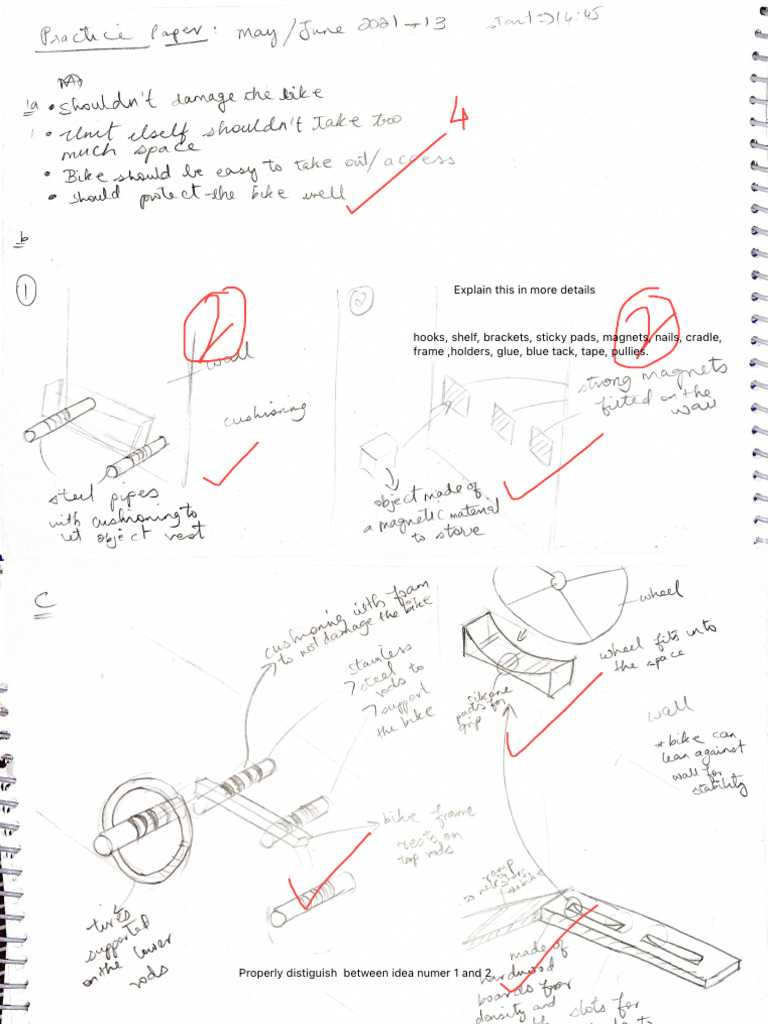 Practice Paper: May/June 2021 → 13
start ⇒ 14:45
1a • Shouldn't damage the bike
• Unit itself shouldn't take too
much space
• Bike should be easy to take out/access
• Should protect the bike well
4
b
1
2
wall
cushioning
steel pipes
with cushioning to
let object rest
2
Explain this in more details
hooks, shelf, brackets, sticky pads, magnets, nails, cradle,
frame ,holders, glue, blue tack, tape, pullies.
2
strong magnets
fitted on the
wall
object made of
a magnetic material
to store
C
cushioning with foam
to not damage the bike
stainless
steel
rods to
support
the bike
bike frame
rests on
top rods
tires
supported
on the lower
rods
wheel
wheel fits into
the space
silicone
pads for
grip
wall
* bike can
lean against
wall for
stability
ramp
made of
hardwood
boards for
density and
slots for
to
Properly distiguish between idea numer 1 and 2